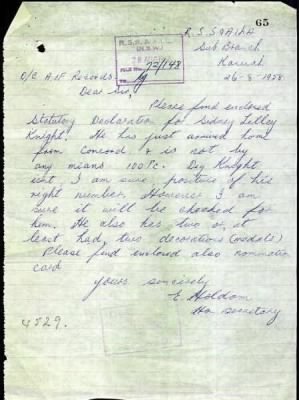 65
R.S.S.A.I.L.A
Sub Branch
26-8-1958
R.S.S.A.I.L.A.
(N.S.W.)
FILE No. 72/148
O/C A.I.F Records
Dear Sir,
Please find enclosed
Statutory Declaration for Sidney
Knight. He has just arrived home
from Concord & is not by
any means 100 Pc. Dig Knight
isnt I am sure, positive of his
right number. However I am
sure it will be checked for
him. He also has two or, at
least had, two decorations (medals)
Please find enclosed also nomination
card
Yours sincerely
E Holdom
Hon Secretary
4529.